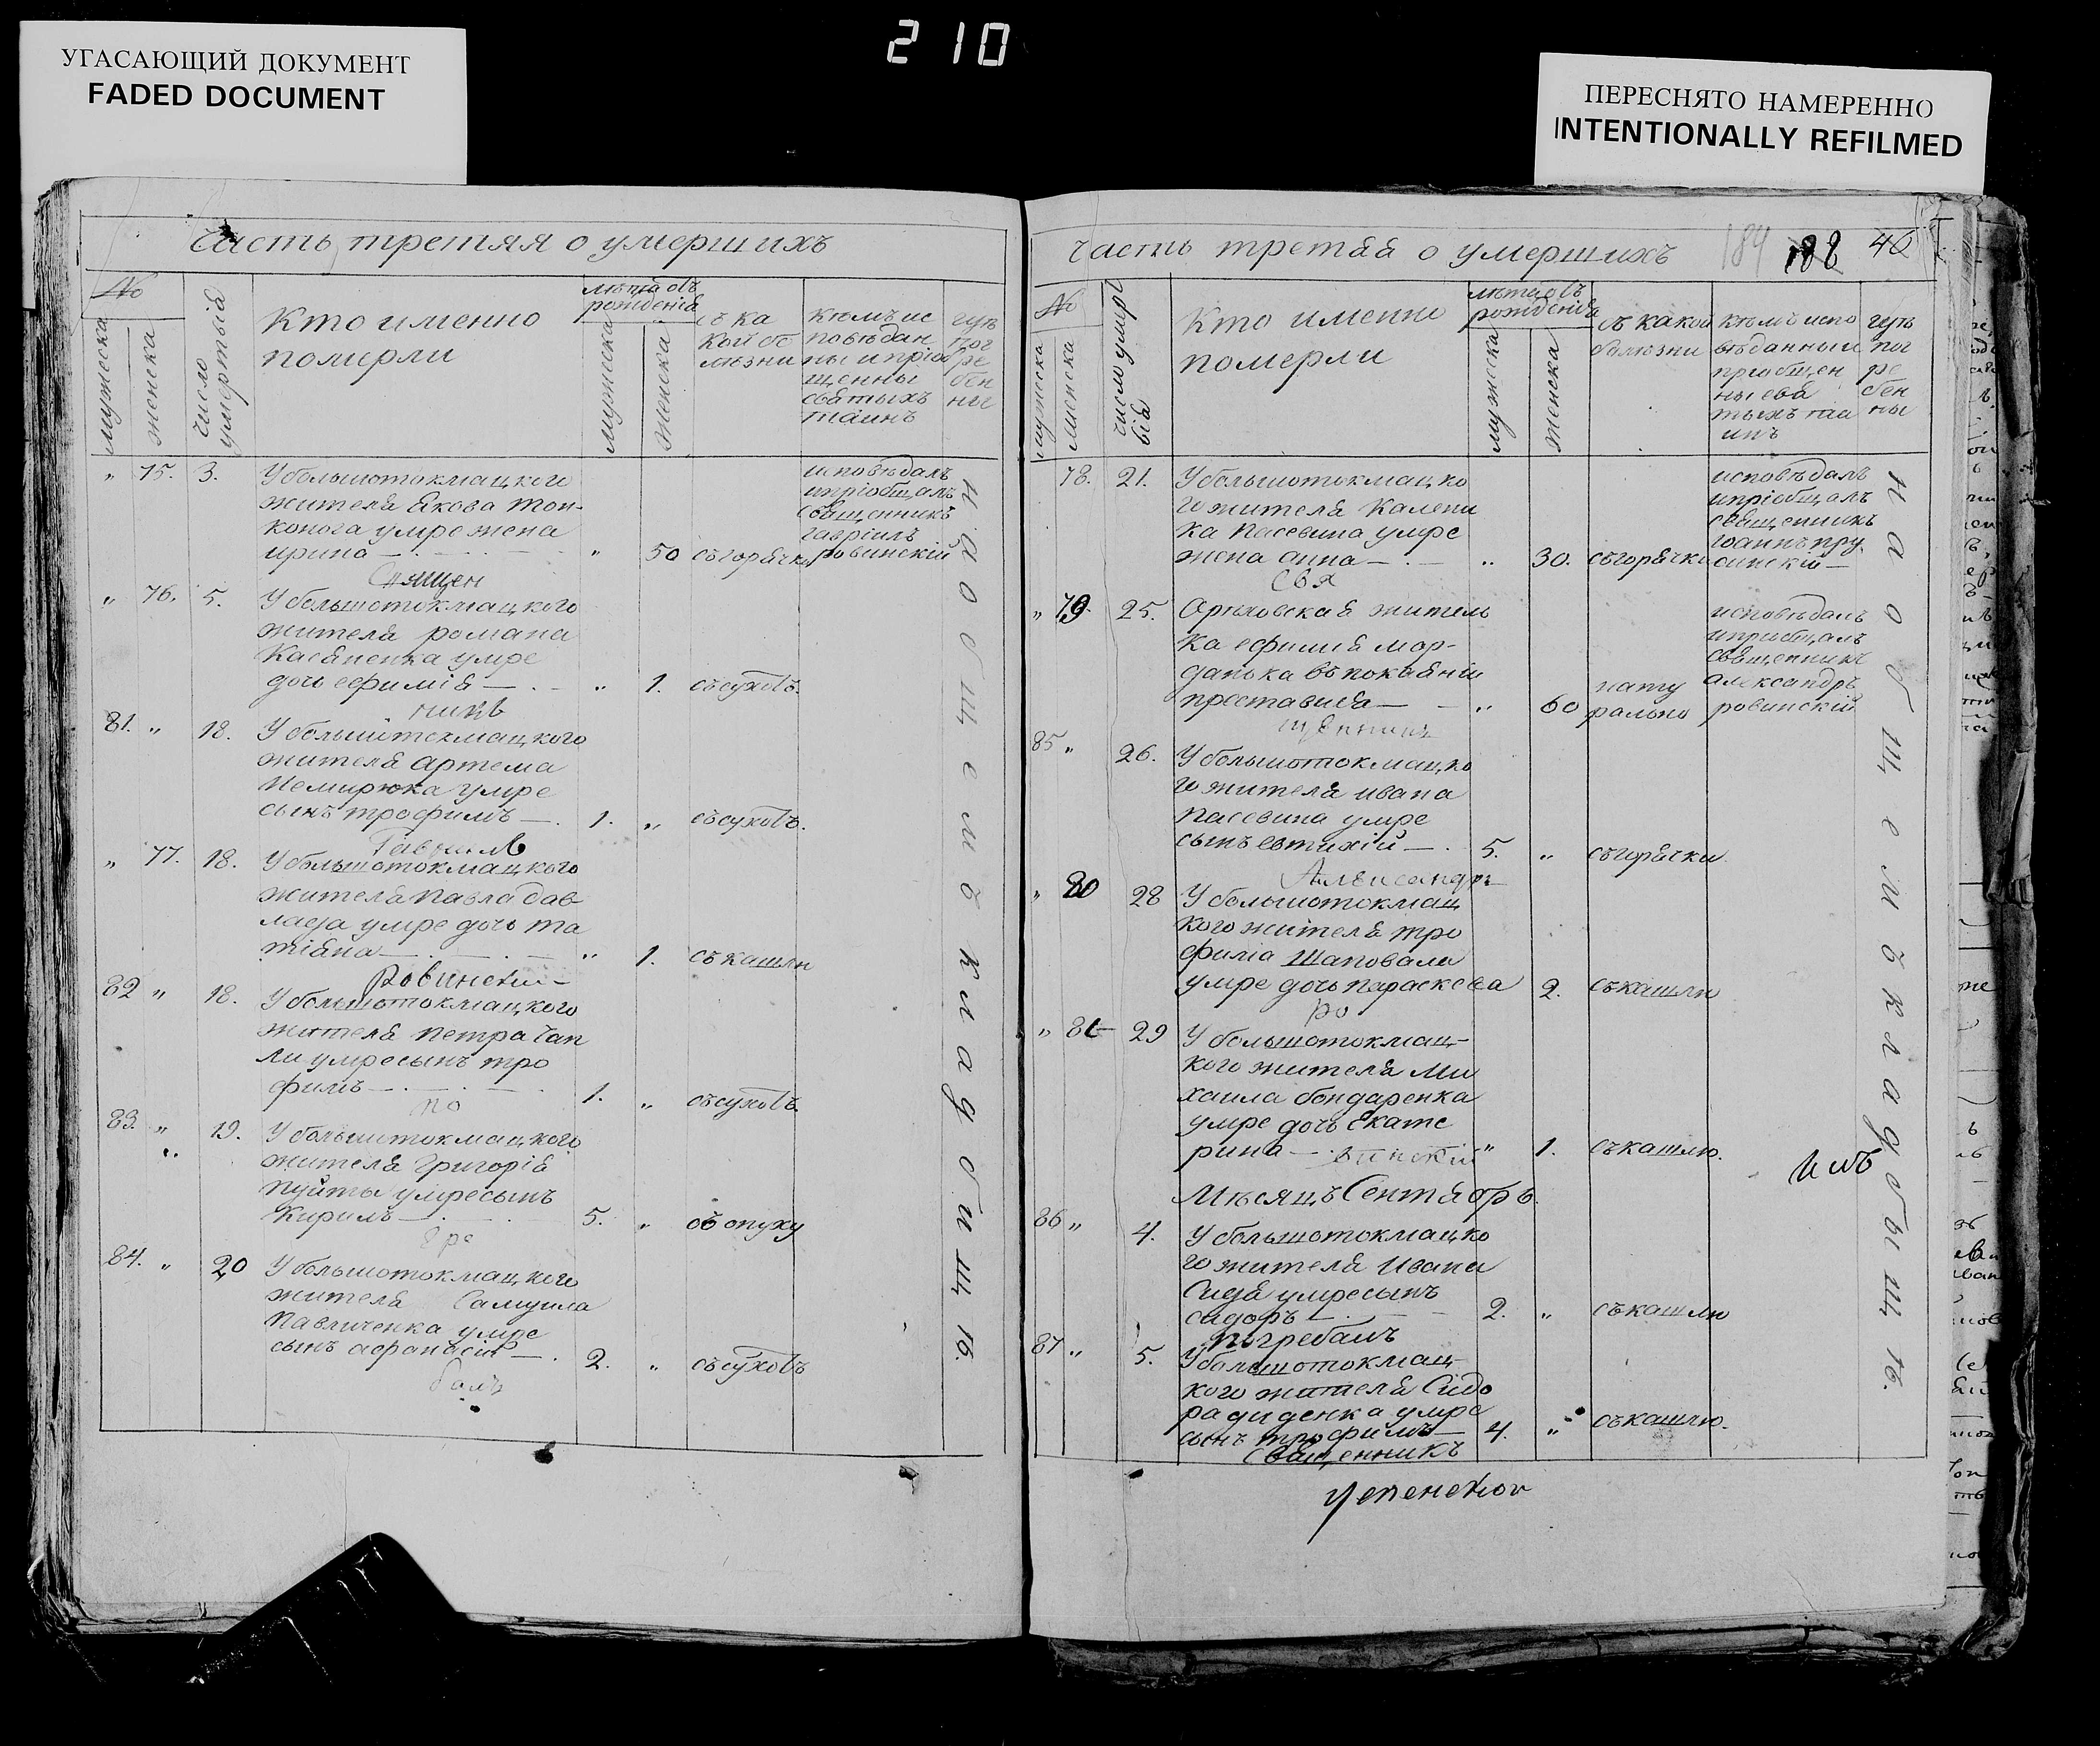 210
УГАСАЮЩИЙ ДОКУМЕНТ
FADED DOCUMENT
ПЕРЕСНЯТО НАМЕРЕННО
INTENTIONALLY REFILMED
Часть третяя о умершихъ
№
мужеска
женска
число умертвія
Кто именно
померли
лѣта отъ
рожденія
мужеска
женска
съ ка
кой бо
лѣзни
кѣмъ ис
повѣдан
ны и пріоб
щенны
святыхъ
таинъ
гдѣ
пог
ре
бен
ны
" 75. 3. У большотокмацкого
жителя Якова Тон-
конога умре жена
ирина — " 50 съ горячки
исповѣдалъ
и пріобщалъ
священникъ
гавріилъ
ровинскій
Священ
" 76. 5. У большотокмацкого
жителя романа
Касяненка умре
дочь ефимія — " 1. съ сухотъ.
никъ
81. " 18. У большитокмацкого
жителя артема
Немирюка умре
сынъ трофимъ — 1. " съ сухотъ.
Гавріилъ
" 77. 18. У большотокмацкого
жителя павла
умре дочь та
тіана — " 1. съ кашлю
Ровинскій —
82 " 18. У большотокмацкого
жителя петра Чап
ли умре сынъ тро
фимъ — 1. " съ сухотъ
по
83. " 19. У большитокмацкого
жителя григорія
умре сынъ
Кирилъ — 5. " съ опуху
гре
84. " 20 У большотокмацкого
жителя Самуила
Павличенка умре
сынъ афанасій — 2. " съ сухотъ
балъ
на общемъ кладбищѣ.
часть третяя о умершихъ
184 188 46
№
мужеска
женска
число умертвія
Кто именно
померли
лѣта отъ
рожденія
мужеска
женска
съ какой
болѣзни
кѣмъ испо
вѣданны и
пріобщен
ны свя
тыхъ таи
инъ
гдѣ
пог
ре
бен
ны
78. 21. У большотокмацко
го жителя Калени
ка Пасевина умре
жена анна — " 30. съ горячки
исповѣдалъ
и пріобщалъ
священникъ
іоаннъ пру
синскій —
Свя
" 79 25. Орѣховская житель
ка ефимія мор-
данька въ покаяніи
преставися — " 60 нату
рально
исповѣдалъ
и пріобщалъ
священникъ
александръ
ровинскій
щенникъ
85 " 26. У большотокмацко
го жителя ивана
Пасевина умре
сынъ евтихій — 5. " съ горячки
Александръ
" 80 28 У большотокмац
кого жителя тро
фима Шаповала
умре дочь параскева 2. съ кашлю
Ро
" 81 29 У большотокмац-
кого жителя Ми
хаила бондаренка
умре дочь Екате
рина — " 1. съ кашлю.
винскій
Мѣсяцъ Сентябрь.
86 " 4. У большотокмацко
го жителя Ивана
умре сынъ
сидоръ — 2. " съ кашлю
погребалъ
87 " 5. У большотокмац
кого жителя Сидо
ра диденка умре
сынъ трофимъ — 4. " съ кашлю.
Священникъ
на общемъ кладбыщѣ.